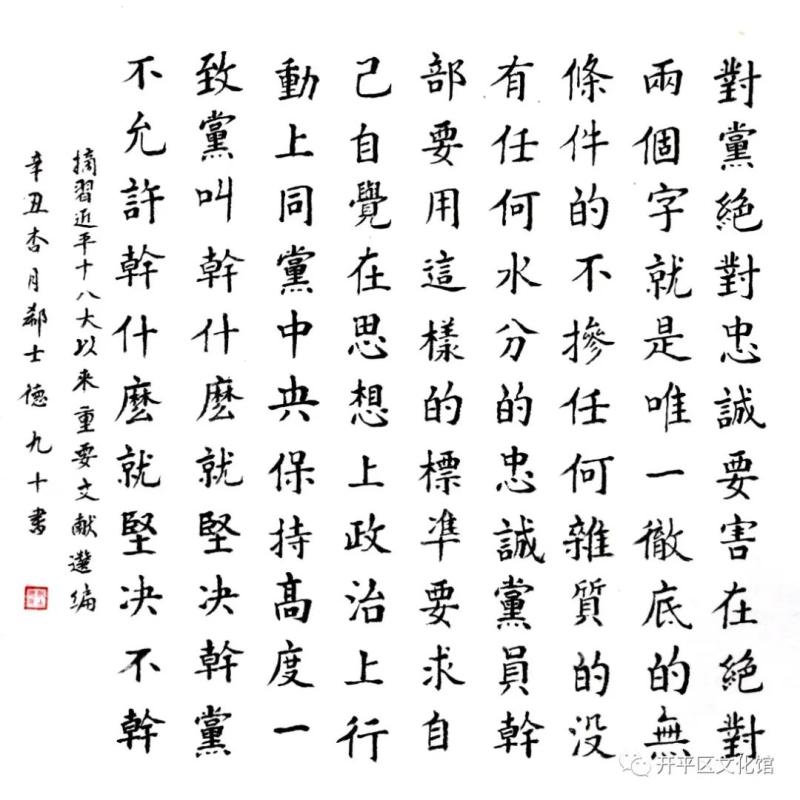 對黨絕對忠誠要害在絕對
兩個字就是唯一徹底的無
條件的不摻任何雜質的没
有任何水分的忠誠黨員幹
部要用這樣的標準要求自
己自覺在思想上政治上行
動上同黨中央保持高度一
致黨叫幹什麽就堅决幹黨
不允許幹什麽就堅决不幹
摘習近平十八大以来重要文献選编
辛丑杏月鄰士德九十書
开平区文化馆